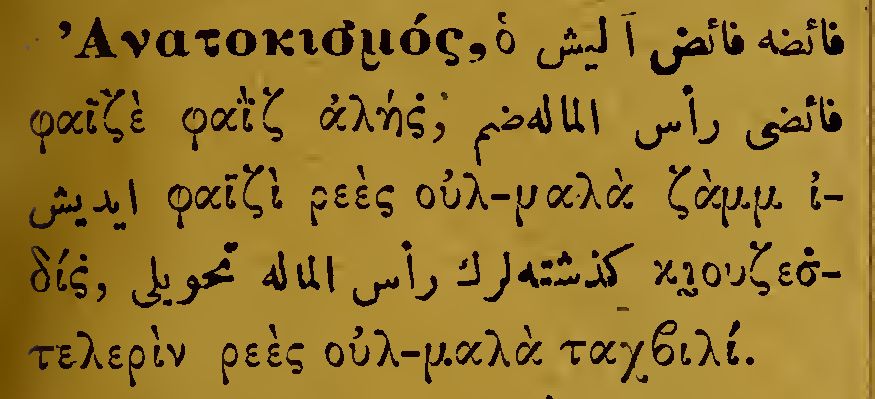 Ἀνατοκισμός, ὁ فائضه فائض آليش
φαϊζὲ φαῒζ ἀλής̇, فائضى رأس الماله ضم
ايديش φαϊζὶ ρεὲς οὐλ-μαλὰ ζὰμμ ἰ-
δίς̇, كذشته‌لرك رأس الماله تحويلى κιουζεσ̇-
τελερὶν ρεὲς οὐλ-μαλὰ ταχβιλί.